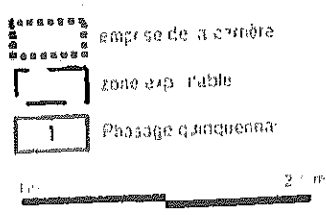 emprise de la carrière
zone exploitable
1
Phasage quinquennal